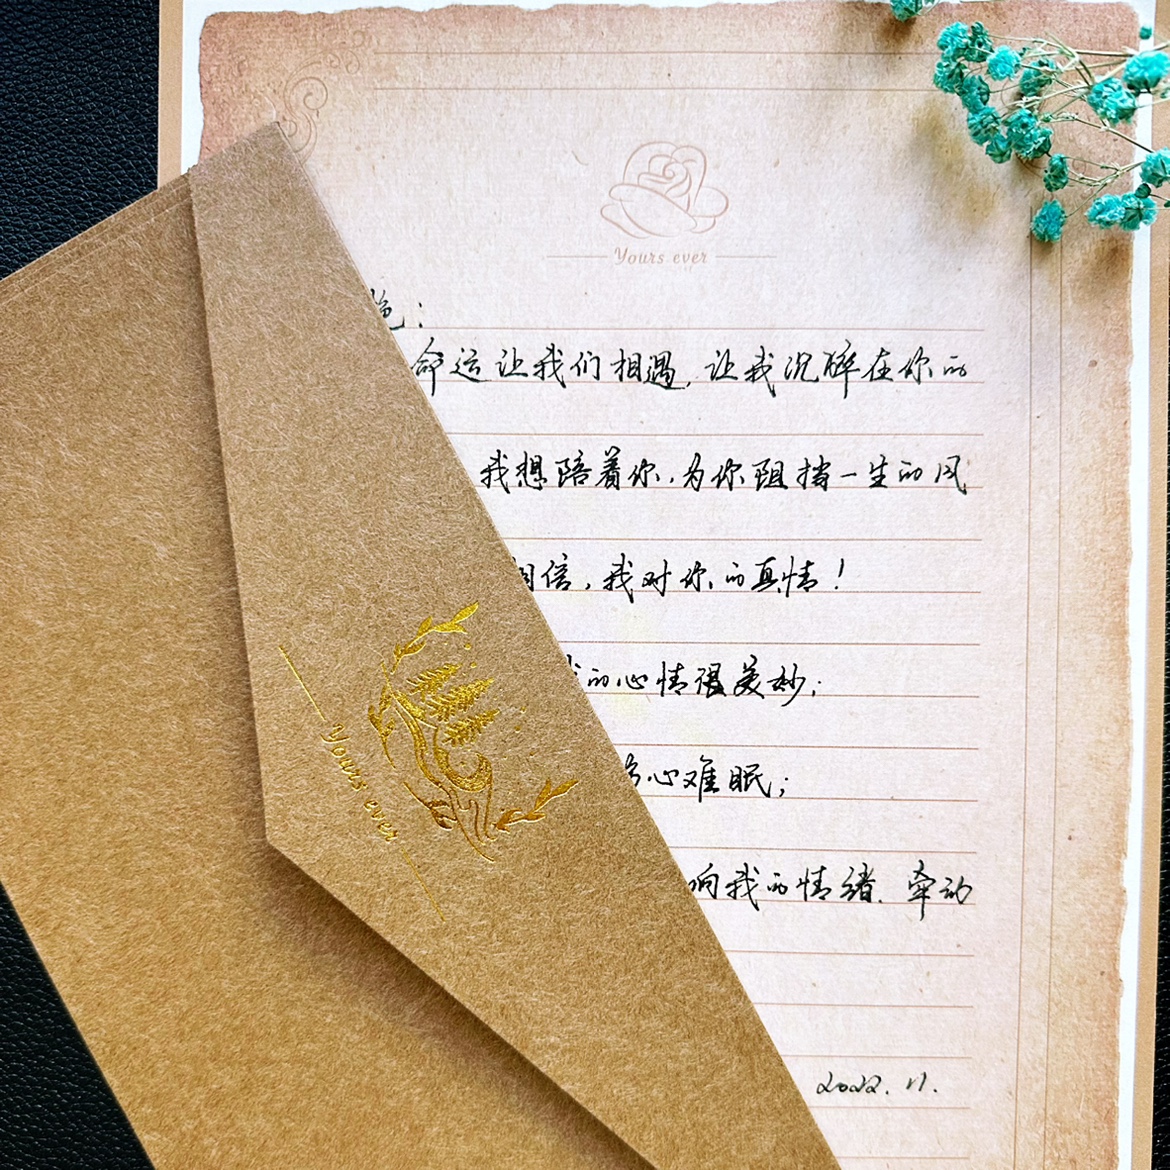 Yours ever
命运让我们相遇,让我沉醉在你的
我想陪着你,为你阻挡一生的风
相信,我对你的真情!
我的心情很美妙;
心难眠;
响我的情绪.牵动
2022.11.
Yours ever